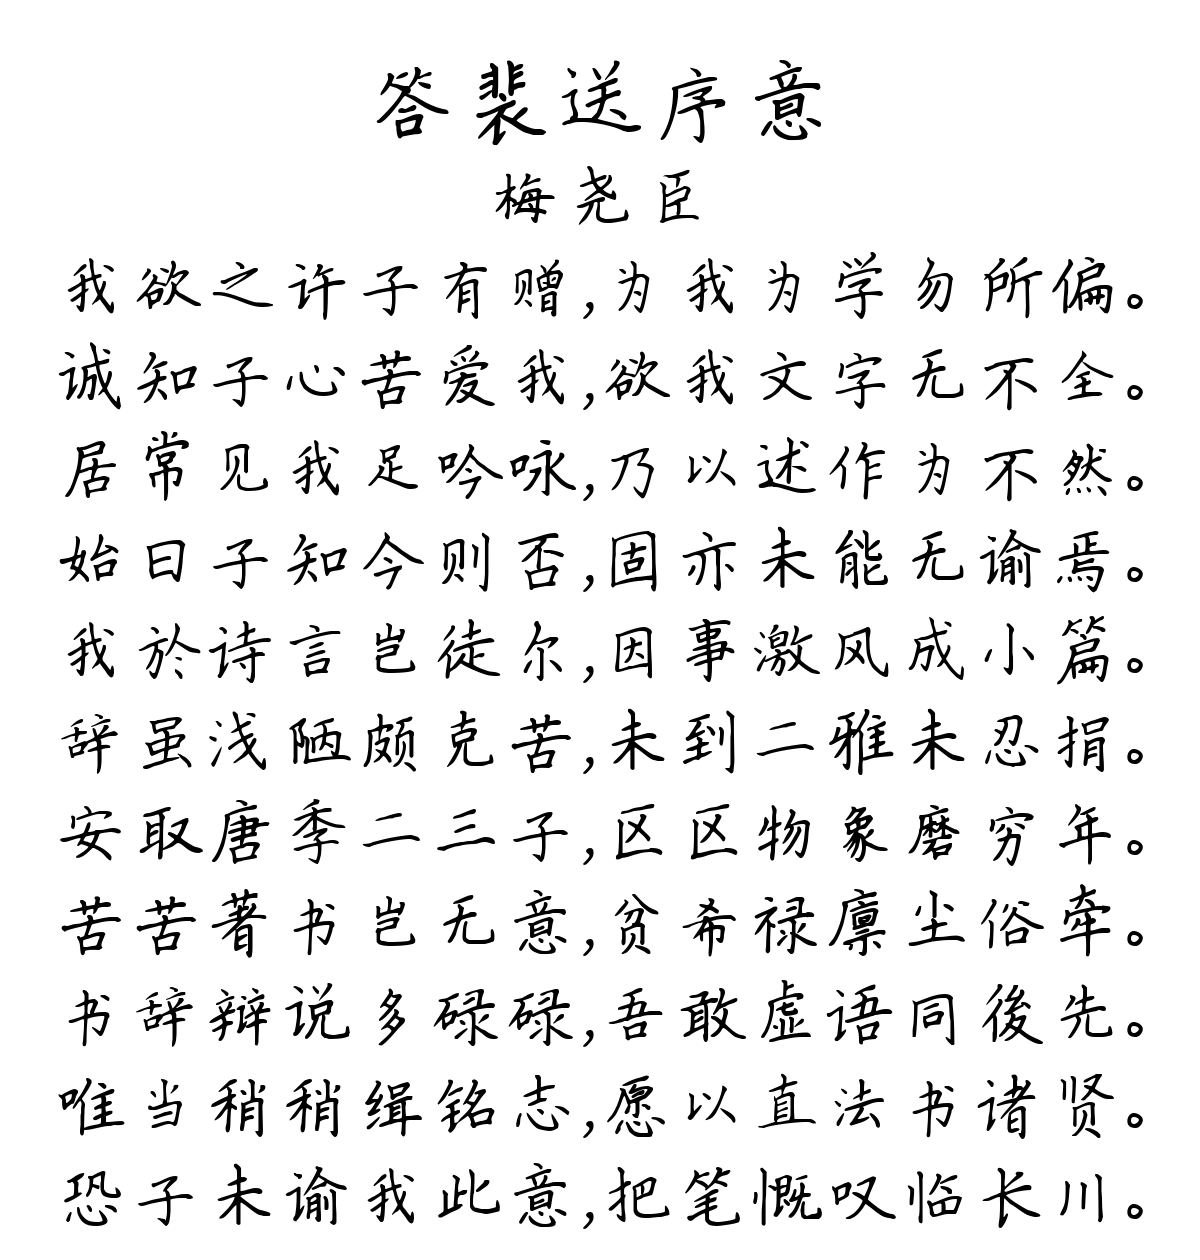 答裴送序意
梅尧臣
我欲之许子有赠,为我为学勿所偏。
诚知子心苦爱我,欲我文字无不全。
居常见我足吟咏,乃以述作为不然。
始曰子知今则否,固亦未能无谕焉。
我於诗言岂徒尔,因事激风成小篇。
辞虽浅陋颇克苦,未到二雅未忍捐。
安取唐季二三子,区区物象磨穷年。
苦苦著书岂无意,贫希禄廪尘俗牵。
书辞辩说多碌碌,吾敢虚语同後先。
唯当稍稍缉铭志,愿以直法书诸贤。
恐子未谕我此意,把笔慨叹临长川。